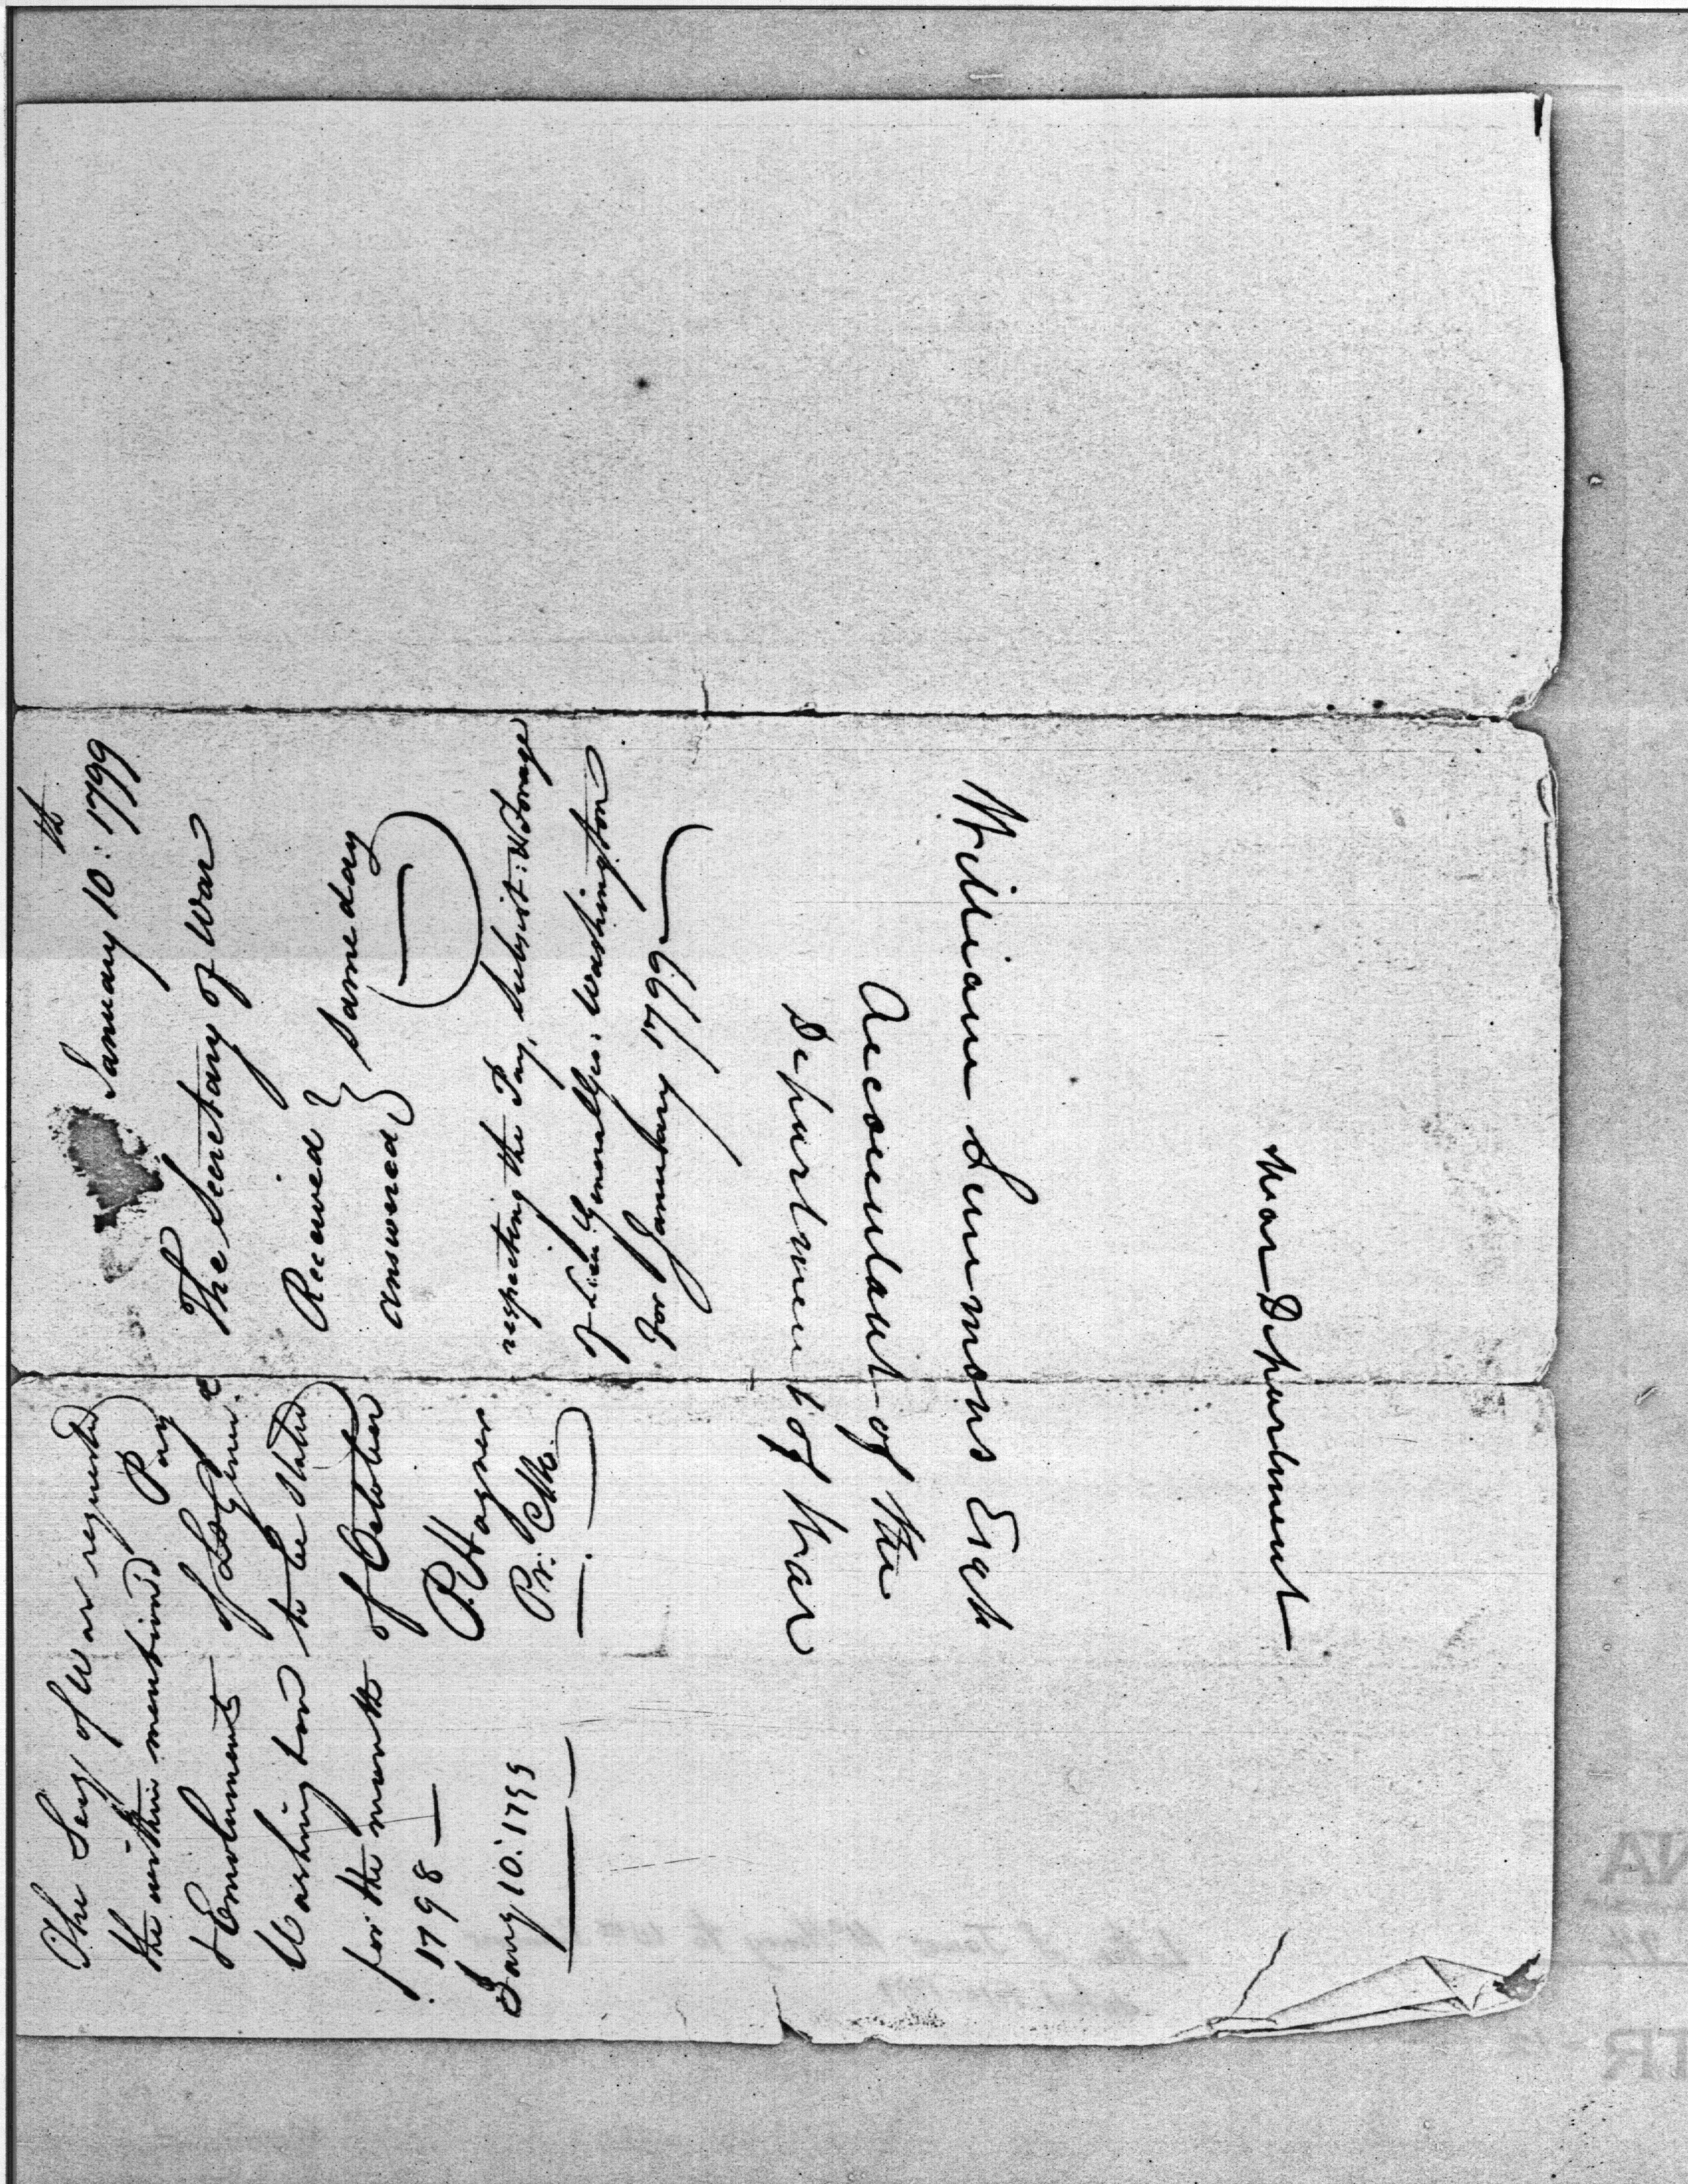 January 10:th 1799
The Secretary of War
Received }
answered } same day
respecting the Pay, Subsist: & Forage
of Lieu: General Geo: Washington
For January 1799
The Secy of War requested
the within mentioned Pay
& Emoluments of
Washington to be stated
for the month of October
1798 —
P. Hagner
Pr. Clk.
Jany 10. 1799
William Simmons Esqr
Accountant of the
Department of War
War Department